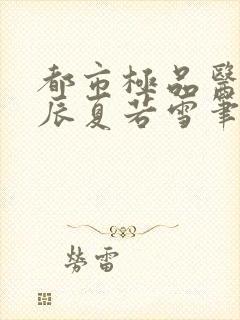 都市極品醫
辰夏若雪筆
勞雷